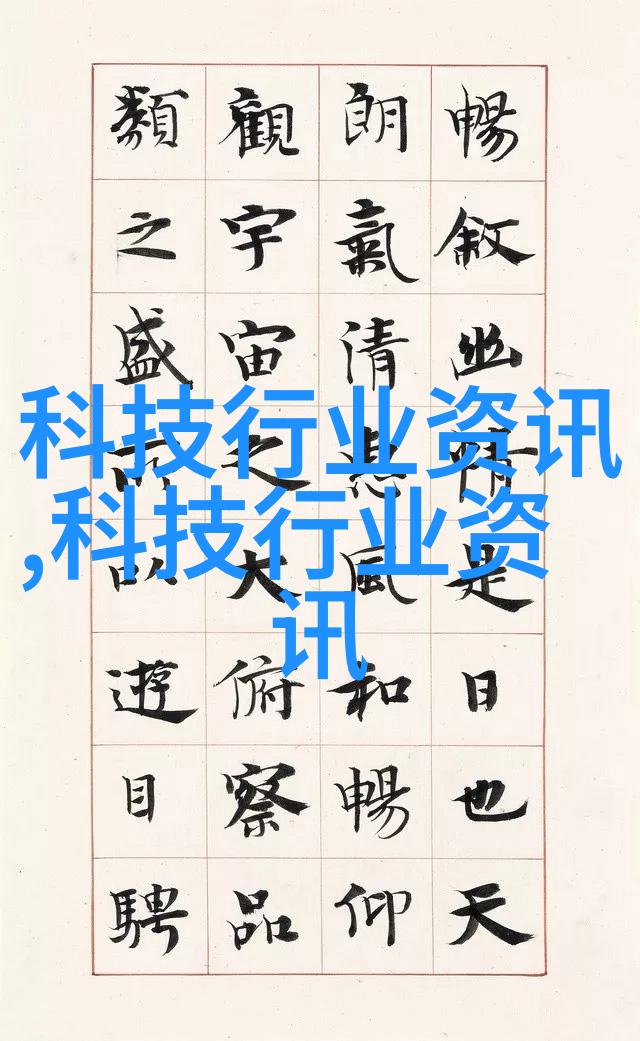 暢敘幽情是日也天
朗氣清惠風和暢仰
觀宇宙之大俯察品
類之盛所以遊目騁
科技行业资讯
,科技行业资
讯